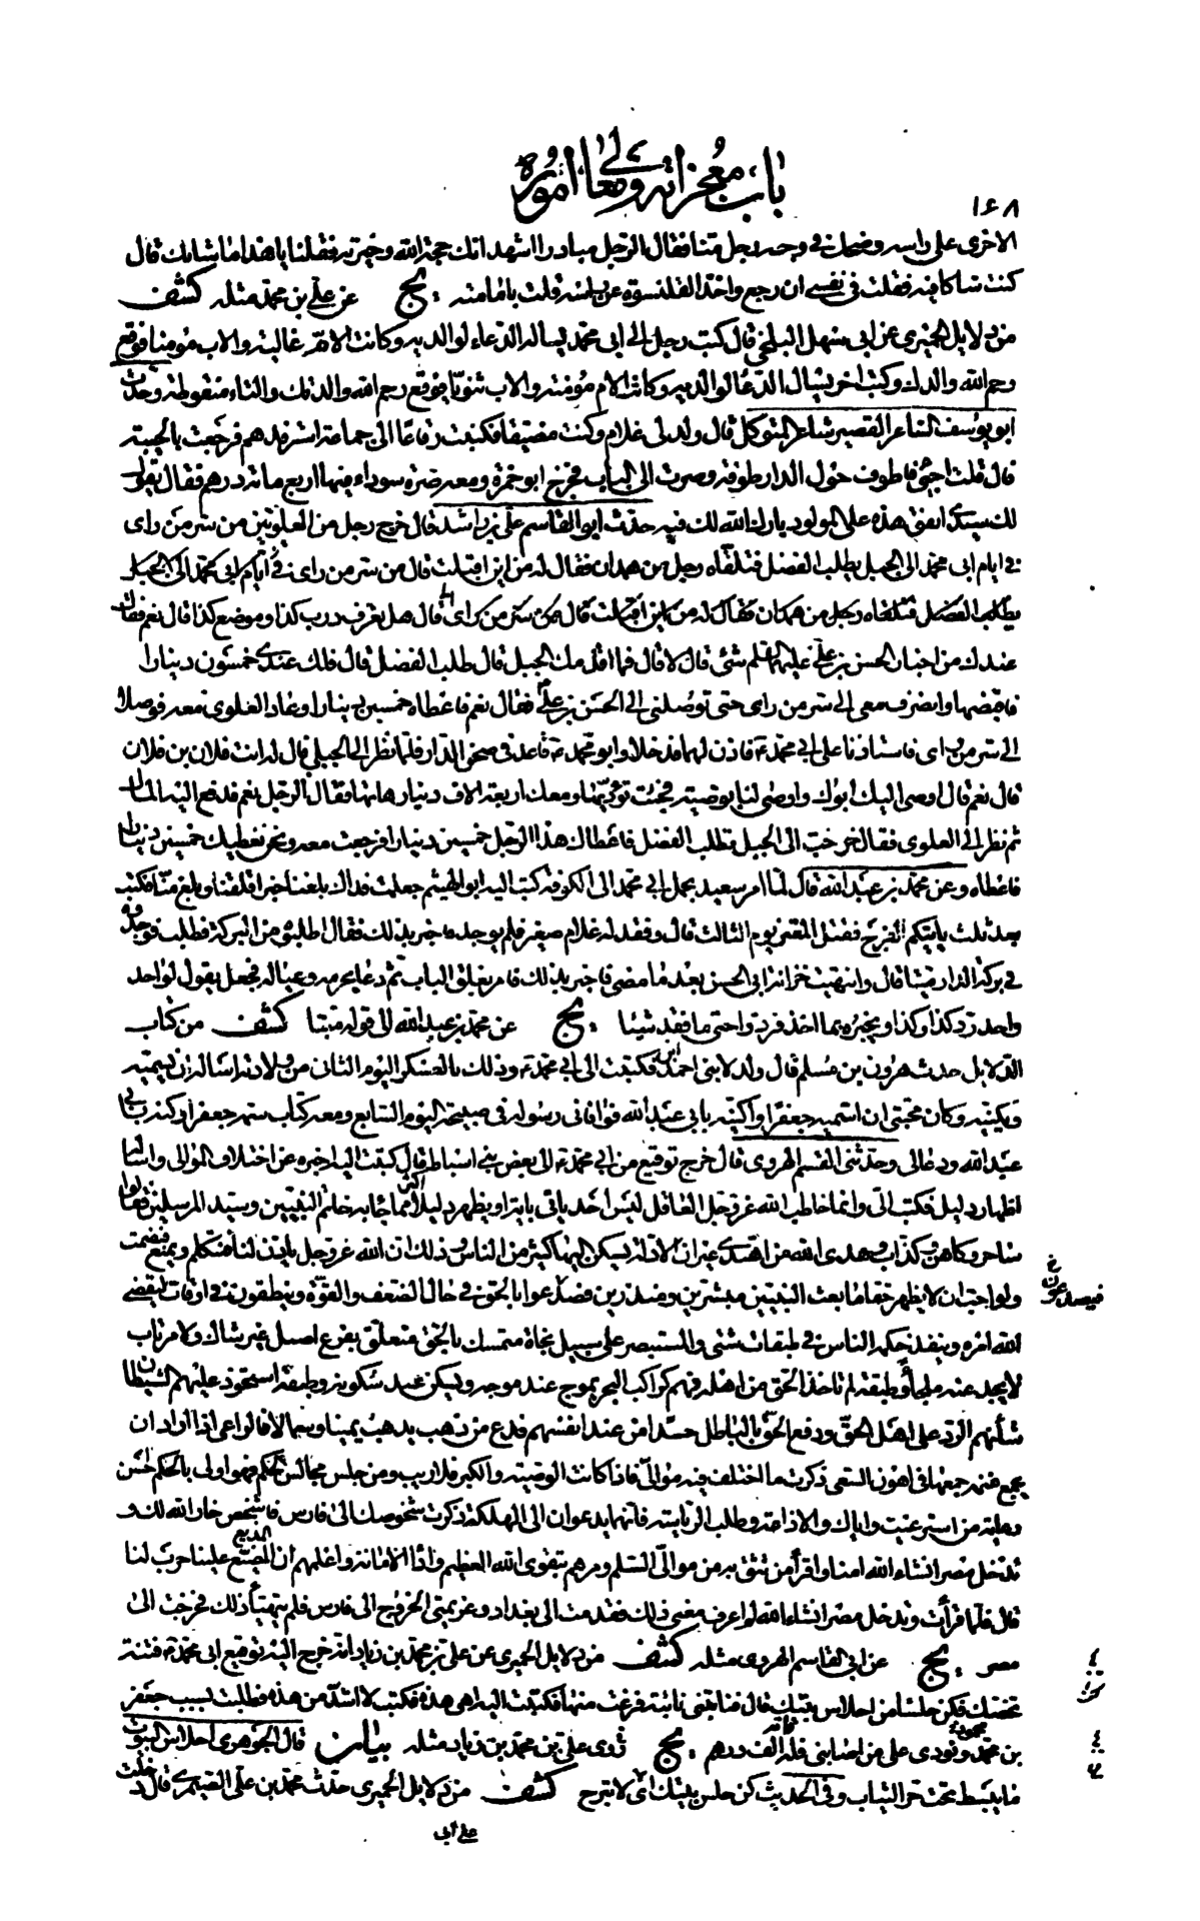 باب معجزاته ومعالي اموره
١٦٨
الاخرى على راسه وضحك في وجه رجل منا فقال الرجل مبادرا اشهد انك حجة الله وخيرته فقلنا يا هذا ما شانك قال
كنت شاكا فيه فقلت في نفسي ان رجع واخذ القلنسوة عن راسه قلت بامامته . يج عن علي بن محمد مثله كشف
من دلايل الحميري عن ابي سهل البلخي قال كتب رجل الى ابي محمد يساله الدعاء لوالديه وكانت الام غالية والاب مؤمنا فوقع
رحم الله والدك وكتب اخر يسال الدعا لوالديه وكانت الام مؤمنة والاب ثنويا فوقع رحم الله والدتك والتاء منقوطة وحدث
ابو يوسف الشاعر القصير شاعر المتوكل قال ولد لي غلام وكنت مضيقا فكتبت رقاعا الى جماعة استرفدهم فرجعت بالخيبة
قال قلت اجئ فاطوف حول الدار طوفة وصرت الى الباب فخرج ابو حمزة ومعه صرة سوداء فيها اربع مائة درهم فقال يقول
لك سيدي انفق هذه على المولود بارك الله لك فيه حدث ابو القاسم علي بن راشد قال خرج رجل من العلويين من سر من راى
في ايام ابي محمد الى الجبل يطلب الفضل فتلقاه رجل من همدان فقال له من اين اقبلت قال من سر من راى في ايام ابي محمد الى الجبل
يطلب الفضل فتلقاه رجل من همدان فقال له من اين اقبلت قال من سر من راى قال هل تعرف درب كذا وموضع كذا قال نعم فقال
عندك من اخبار الحسن بن علي عليهما السلم شئ قال لا قال فما اقدمك الجبل قال طلب الفضل قال فلك عندي خمسون دينارا
فاقبضها وانصرف معي الى سر من راى حتى توصلني الى الحسن بن علي فقال نعم فاعطاه خمسين دينارا وعاد العلوي معه فوصلا
الى سر من راى فاستاذنا على ابي محمد ع فاذن لهما فدخلا وابو محمد ع قاعد في صحن الدار فلما نظر الى الجبلي قال له انت فلان بن فلان
قال نعم قال اوصى اليك ابوك واوصى لنا بوصية فجئت تؤديها ومعك اربعة الاف دينار هاتها فقال الرجل نعم فدفع اليه المال
ثم نظر الى العلوي فقال خرجت الى الجبل تطلب الفضل فاعطاك هذا الرجل خمسين دينارا فرجعت معه ونحن نعطيك خمسين دينارا
فاعطاه وعن محمد بن عبد الله قال لما امر سعيد بحمل ابي محمد الى الكوفة كتب اليه ابو الهيثم جعلت فداك بلغنا خبر اقلقنا وبلغ منا فكتب
بعد ثلث ياتيكم الفرج فقتل المعتز يوم الثالث قال وفقد له غلام صغير فلم يوجد فاخبر بذلك فقال اطلبوه من البركة فطلب فوجد
في بركة الدار ميتا قال وانتهبت خزانة ابي الحسن بعد ما مضى فاخبر بذلك فامر بغلق الباب ثم دعا بحرمه وعياله فجعل يقول لواحد
واحد رد كذا وكذا ويخبره بما اخذ فردوا حتى ما فقد شيئا . يج عن محمد بن عبد الله الى قوله ميتا كشف من كتاب
الدلايل حدث هرون بن مسلم قال ولد لابني احمد ابن فكتبت الى ابي محمد ع وذلك بالعسكر اليوم الثاني من ولادته اساله ان يسميه
ويكنيه وكان محبتي ان اسميه جعفرا واكنيه بابي عبد الله فوافاني رسوله في صبيحة اليوم السابع ومعه كتاب سمه جعفرا وكنه بابي
عبد الله ودعا لي وحدثني القسم الهروي قال خرج توقيع من ابي محمد ع الى بعض بني اسباط قال كتبت اليه اخبره عن اختلاف الموالي واساله
اظهار دليل فكتب الي وانما خاطب الله عز وجل العاقل ليس احد ياتي باية او يظهر دليلا اكثر مما جاء به خاتم النبيين وسيد المرسلين فقالوا
ساحر وكاهن وكذاب وهدى الله من اهتدى غير ان الادلة يسكن اليها كثير من الناس وذلك ان الله عز وجل ياذن لنا فنتكلم ويمنع فنصمت
ولو احب ان لا يظهر حقا ما بعث النبيين مبشرين ومنذرين فصدعوا بالحق في حال الضعف والقوة وينطقون في اوقات ليقضي
فيصدعون خ
الله امره وينفذ حكمه الناس في طبقات شتى والمستبصر على سبيل نجاة متمسك بالحق متعلق بفرع اصيل غير شاك ولا مرتاب
لا يجد عنه ملجأ وطبقة لم تاخذ الحق من اهله فهم كراكب البحر يموج عند موجه ويسكن عند سكونه وطبقة استحوذ عليهم الشيطان
شأنهم الرد على اهل الحق ودفع الحق بالباطل حسدا من عند انفسهم فدع من ذهب يذهب يمينا وشمالا فالراعي اذا اراد ان
يجمع غنمه جمعها في اهون السعي ذكرت ما اختلف فيه موالي فاذا كانت الوصية والكبر فلا ريب ومن جلس مجالس الحكم فهو اولى بالحكم احسن
رعاية من استرعيت واياك والاذاعة وطلب الرياسة فانهما يدعوان الى الهلكة ذكرت شخوصك الى فارس فاشخص خار الله لك و
تدخل مصر انشاء الله امنا واقرأ من تثق به من موالي السلم ومرهم بتقوى الله العظيم واداء الامانة واعلمهم ان المذيع علينا حرب لنا
قال فلما قرأت وتدخل مصر انشاء الله لم اعرف معنى ذلك فقدمت الى بغداد وعزيمتي الخروج الى فارس فلم يتهيأ ذلك فخرجت الى
مصر . يج عن ابي القاسم الهروي مثله كشف من دلايل الحميري عن علي بن محمد بن زياد انه خرج اليه توقيع ابي محمد ع فتنة
تخصك فكن حلسا من احلاس بيتك قال فنابتني نائبة فزعت منها فكتبت اليه اهي هذه فكتب لا اشد من هذه فطلبت بسبب جعفر
بن محمد ونودي علي من اصابني فله مائة الف درهم . يج روى علي بن محمد بن زياد مثله بيان قال الجوهري احلاس البيوت
ما يبسط تحت حر الثياب وفي الحديث كن حلس بيتك اى لا تبرح كشف من دلايل الحميري حدث محمد بن علي الصيمري قال دخلت
على ابي